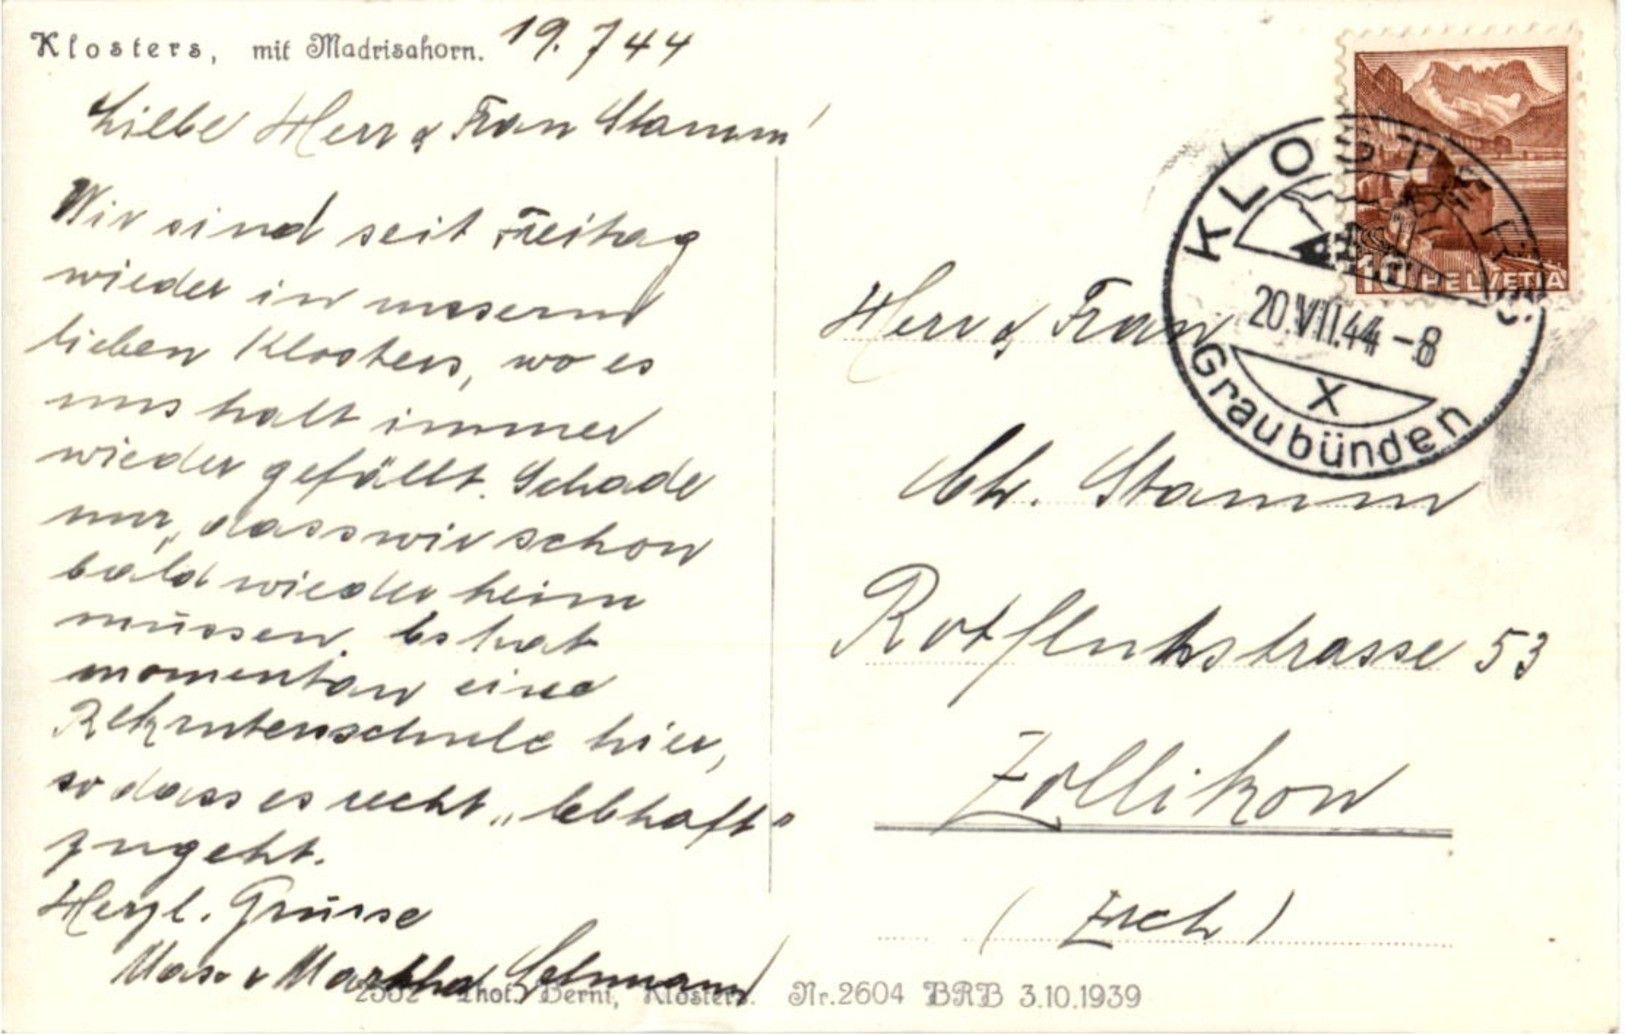 Klosters, mit Madrisahorn. 19.7 44
Liebe Herr & Frau Stamm!
Wir sind seit Freitag
wieder in unserm
lieben Klosters, wo es
uns halt immer
wieder gefällt. Schade
nur, dass wir schon
bald wieder heim
müssen. Es hat
momentan eine
Rekrutenschule hier,
so dass es recht „lebhaft"
zugeht.
Herzl. Grüsse
Max & Martha
2502 Phot. Berni, Klosters. Nr. 2604 BRB 3.10.1939
10 HELVETIA
KLOSTERS
20.VII.44-8
X
Graubünden
Herr & Frau
Ch. Stamm
Rotfluhstrasse 53
Zollikon
(Zrch)